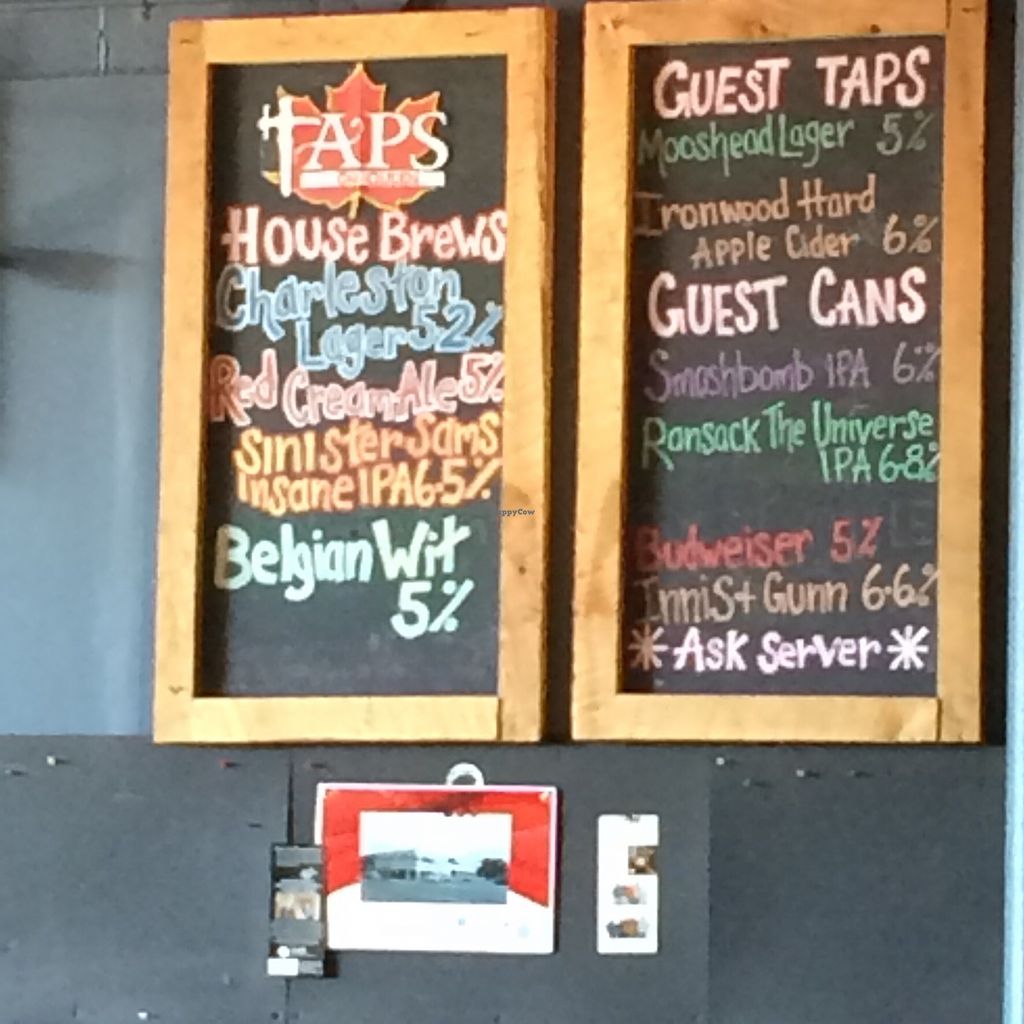 TAPS
House Brews
Charleston
Lager 5.2%
Red Cream Ale 5%
Sinister Sams
Insane IPA 6.5%
Belgian Wit
5%
GUEST TAPS
Mooshead Lager 5%
Ironwood Hard
Apple Cider 6%
GUEST CANS
Smashbomb IPA 6%
Ransack The Universe
IPA 6.8%
Budweiser 5%
Innis+ Gunn 6.6%
*Ask Server*